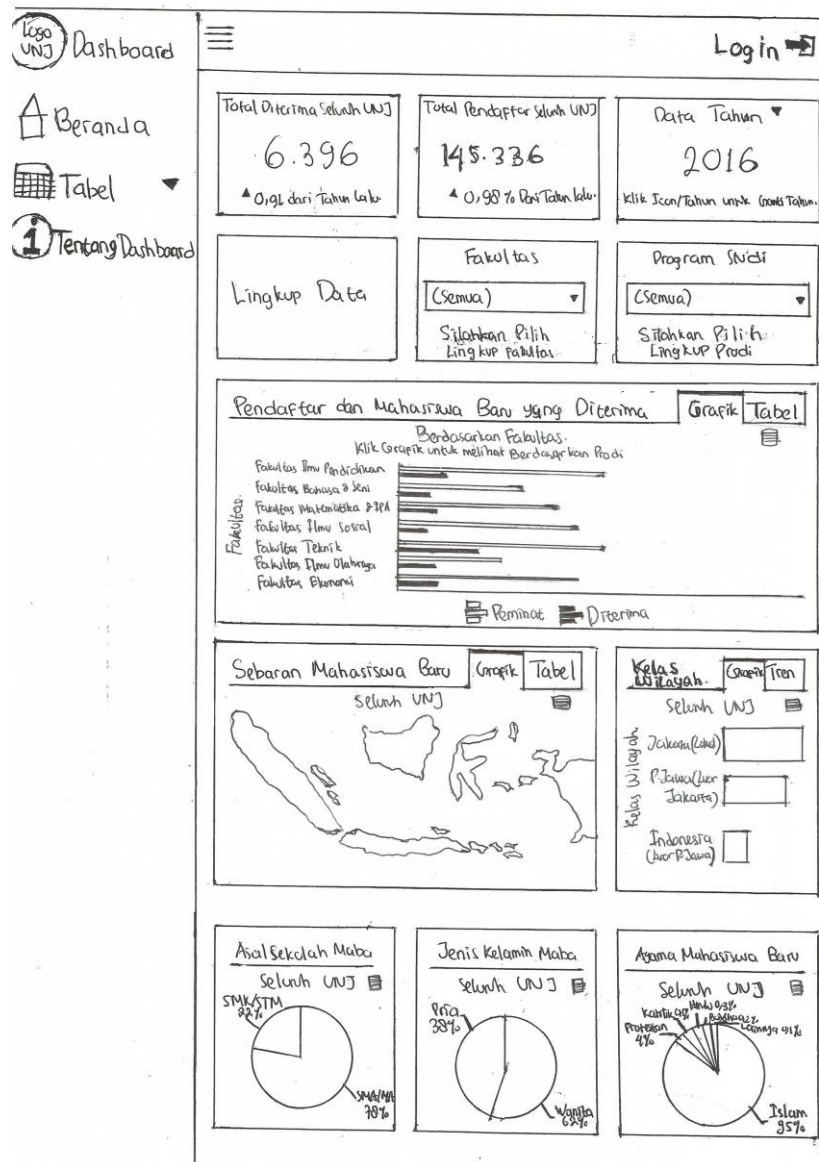 Logo
UNJ
Dashboard
Login
Beranda
Tabel
Tentang Dashboard
Total Diterima Seluruh UNJ
6.396
0,91 dari Tahun Lalu.
Total Pendaftar Seluruh UNJ
145.336
0,98 % Dari Tahun lalu.
Data Tahun
2016
Klik Icon/Tahun untuk Ganti Tahun.
Lingkup Data
Fakultas
(Semua)
Silahkan Pilih
Lingkup Fakultas
Program Studi
(Semua)
Silahkan Pilih
Lingkup Prodi
Pendaftar dan Mahasiswa Baru yang Diterima
Grafik
Tabel
Berdasarkan Fakultas.
Klik Grafik untuk melihat Berdasarkan Prodi
Fakultas.
Fakultas Ilmu Pendidikan
Fakultas Bahasa & Seni
Fakultas Matematika & IPA
Fakultas Ilmu Sosial
Fakultas Teknik
Fakultas Ilmu Olahraga
Fakultas Ekonomi
Peminat
Diterima
Sebaran Mahasiswa Baru
Grafik
Tabel
Seluruh UNJ
Kelas
Wilayah.
Grafik
Tren
Seluruh UNJ
Kelas Wilayah
Jakarta (Lokal)
P.Jawa (Luar
Jakarta)
Indonesia
(Luar P.Jawa)
Asal Sekolah Maba
Seluruh UNJ
SMK/STM
22%
SMA/MA
78%
Jenis Kelamin Maba
Seluruh UNJ
Pria
38%
Wanita
62%
Agama Mahasiswa Baru
Seluruh UNJ
Hindu 0,3%
Katolik
Budha 0,2%
Lainnya
Protestan
4%
Islam
95%